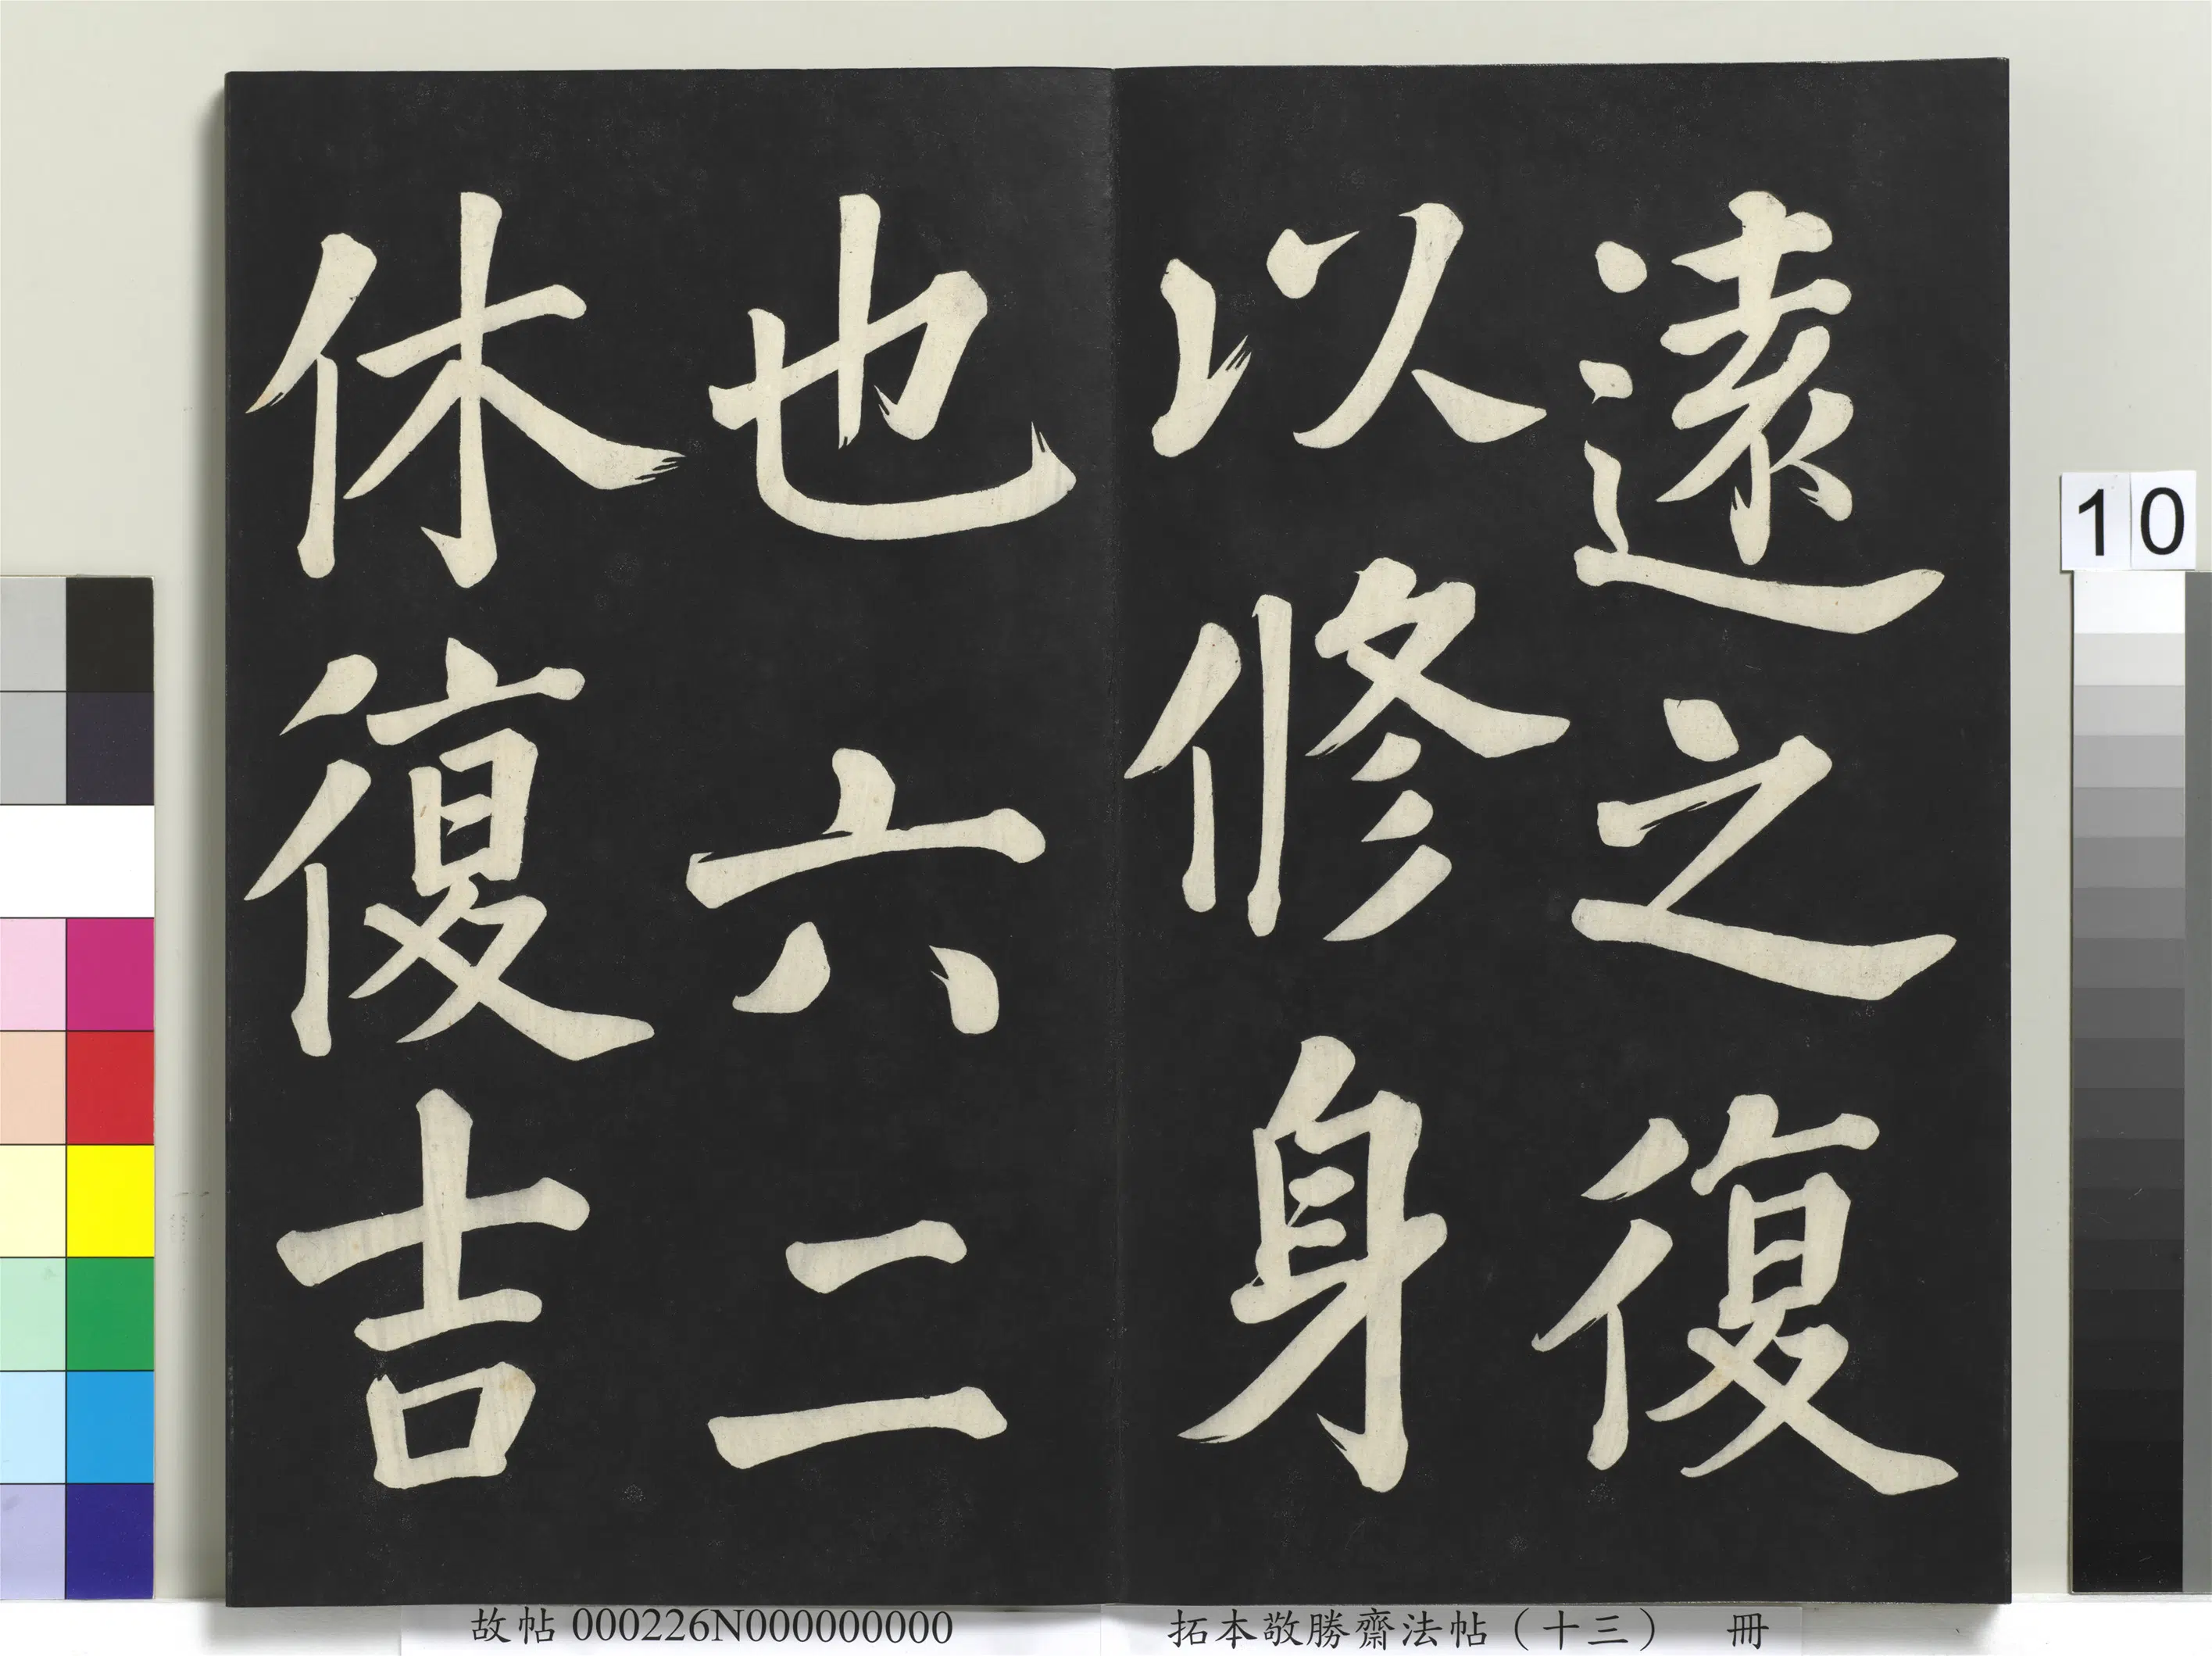 遠之復
以修身
也六二
休復吉
10
故帖 000226N000000000
拓本敬勝齋法帖（十三） 冊